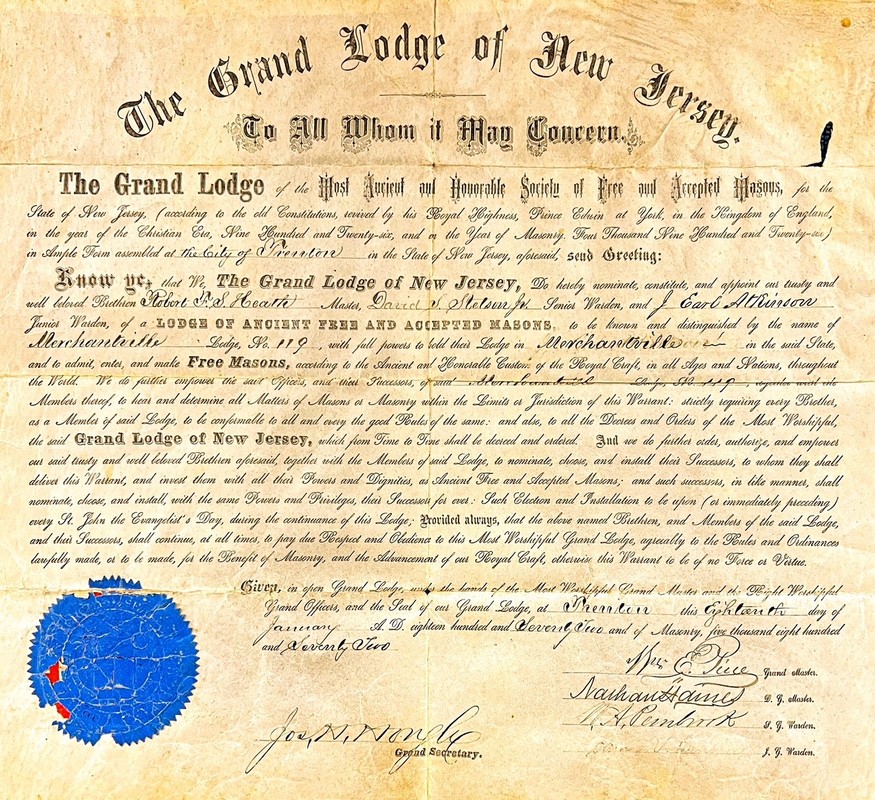 The Grand Lodge of New Jersey.
To All Whom it May Concern.
The Grand Lodge of the Most Ancient and Honorable Society of Free and Accepted Masons, for the
State of New Jersey, (according to the old Constitutions, revived by his Royal Highness, Prince Edwin at York, in the Kingdom of England,
in the year of the Christian Era, Nine Hundred and Twenty-six, and in the Year of Masonry, Four Thousand Nine Hundred and Twenty-six)
in Ample Form assembled at the City of Trenton in the State of New Jersey, aforesaid, send Greeting:
Know ye, that We, The Grand Lodge of New Jersey, Do hereby nominate, constitute, and appoint our trusty and
well beloved Brethren Robert F. S. Heath Master, David S Stetson Jr Senior Warden, and J Earl Atkinson
Junior Warden, of a LODGE OF ANCIENT FREE AND ACCEPTED MASONS, to be known and distinguished by the name of
Merchantville Lodge, No. 119, with full powers to hold their Lodge in Merchantville in the said State,
and to admit, enter, and make Free Masons, according to the Ancient and Honorable Custom of the Royal Craft, in all Ages and Nations, throughout
the World. We do further empower the said Officers, and their Successors, of said Merchantville Lodge, No. 119, together with the
Members thereof, to hear and determine all Matters of Masons or Masonry within the Limits or Jurisdiction of this Warrant: strictly requiring every Brother,
as a Member of said Lodge, to be conformable to all and every the good Rules of the same: and also, to all the Decrees and Orders of the Most Worshipful,
the said Grand Lodge of New Jersey, which from Time to Time shall be decreed and ordered. And we do further order, authorize, and empower
our said trusty and well beloved Brethren aforesaid, together with the Members of said Lodge, to nominate, choose, and install their Successors, to whom they shall
deliver this Warrant, and invest them with all their Powers and Dignities, as Ancient Free and Accepted Masons; and such successors, in like manner, shall
nominate, choose, and install, with the same Powers and Privileges, their Successors for ever: Such Election and Installation to be upon (or immediately preceding)
every St. John the Evangelist's Day, during the continuance of this Lodge; Provided always, that the above named Brethren, and Members of the said Lodge,
and their Successors, shall continue, at all times, to pay due Respect and Obedience to this Most Worshipful Grand Lodge, agreeably to the Rules and Ordinances
lawfully made, or to be made, for the Benefit of Masonry, and the Advancement of our Royal Craft, otherwise this Warrant to be of no Force or Virtue.
Given, in open Grand Lodge, under the hands of the Most Worshipful Grand Master and the Right Worshipful
Grand Officers, and the Seal of our Grand Lodge, at Trenton this Eighteenth day of
January A. D. eighteen hundred and Seventy Two and of Masonry, five thousand eight hundred
and Seventy Two
Wm E. Pine Grand Master.
Nathan Haines D. G. Master.
W. A. Pembrook S. G. Warden.
J. G. Warden.
Jos. H. Hough
Grand Secretary.